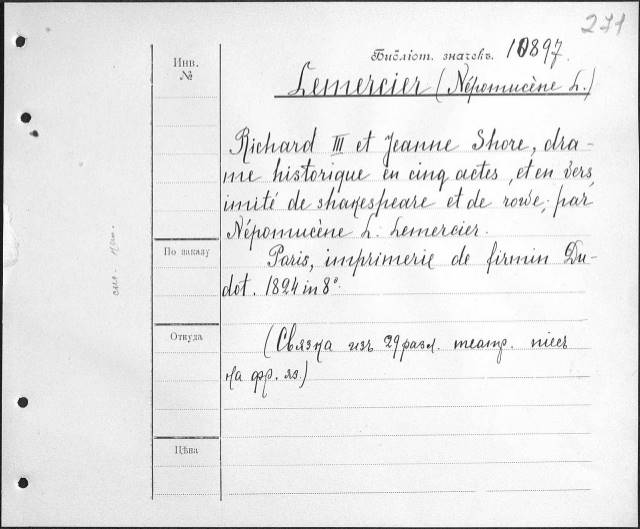 271
Инв. №
Библіот. значекъ. 10897.
Lemercier (Népomucène L.)
Richard III et Jeanne Shore, dra-
me historique en cinq actes, et en vers,
imité de shakespeare et de rowe, par
Népomucène L. Lemercier.
По заказу
Paris, imprimerie de firmin Di-
dot. 1824 in 8°.
Откуда
(Связка изъ 29 разл. театр. пiесъ
на фр. яз.)
Цѣна